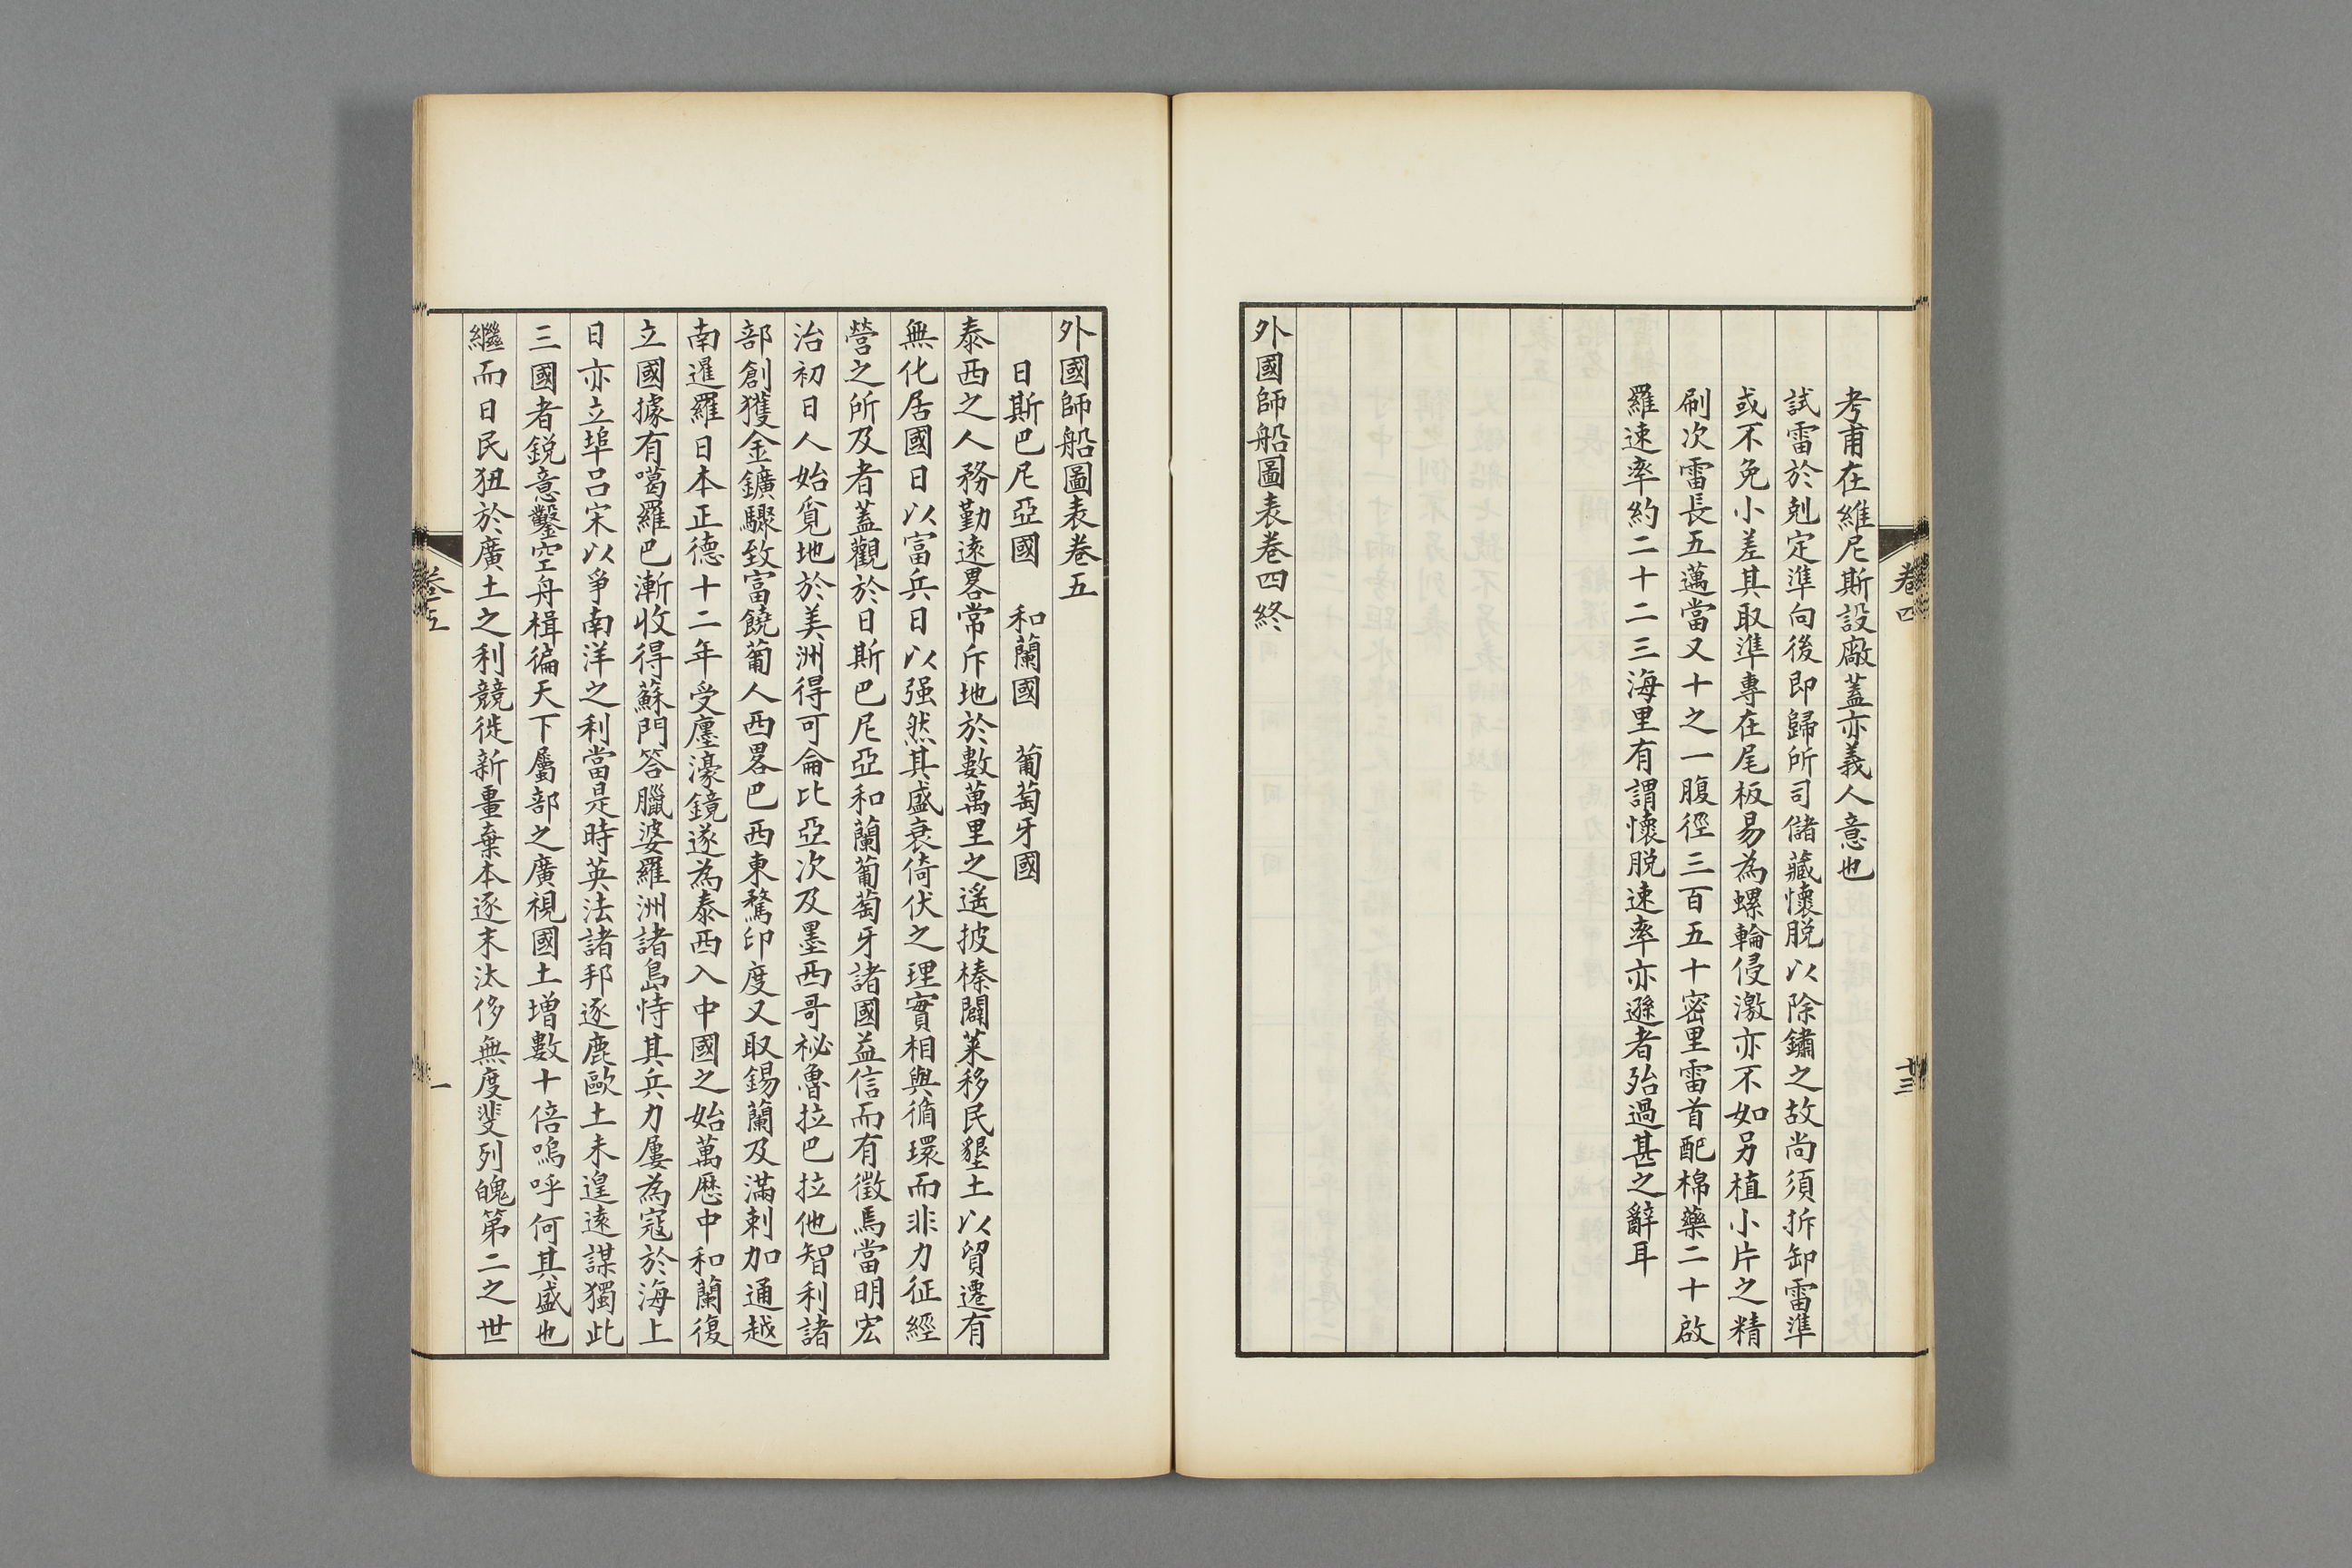 考甫在維尼斯設廠蓋亦義人意也
試雷於剋定準向後即歸所司儲藏懷脱以除鏽之故尚須拆卸雷準
或不免小差其取準專在尾板易為螺輪侵激亦不如另植小片之精
刷次雷長五邁當又十之一腹徑三百五十密里雷首配棉藥二十啟
羅速率約二十二三海里有謂懷脱速率亦遜者殆過甚之辭耳
外國師船圖表卷四終
卷四
十三
外國師船圖表卷五
日斯巴尼亞國　和蘭國　葡萄牙國
泰西之人務勤遠畧常斥地於數萬里之遙披榛闢萊移民墾土以貿遷有
無化居國日以富兵日以强然其盛衰倚伏之理實相與循環而非力征經
營之所及者蓋觀於日斯巴尼亞和蘭葡萄牙諸國益信而有徵焉當明宏
治初日人始覓地於美洲得可侖比亞次及墨西哥祕魯拉巴拉他智利諸
部創獲金鑛驟致富饒葡人西畧巴西東騖印度又取錫蘭及滿剌加通越
南暹羅日本正德十二年受廛濠鏡遂為泰西入中國之始萬厯中和蘭復
立國據有噶羅巴漸收得蘇門答臘婆羅洲諸島恃其兵力屢為寇於海上
日亦立埠呂宋以爭南洋之利當是時英法諸邦逐鹿歐土未遑遠謀獨此
三國者鋭意鑿空舟楫徧天下屬部之廣視國土增數十倍嗚呼何其盛也
繼而日民狃於廣土之利競徙新畺棄本逐末汰侈無度斐列魄第二之世
卷五
一